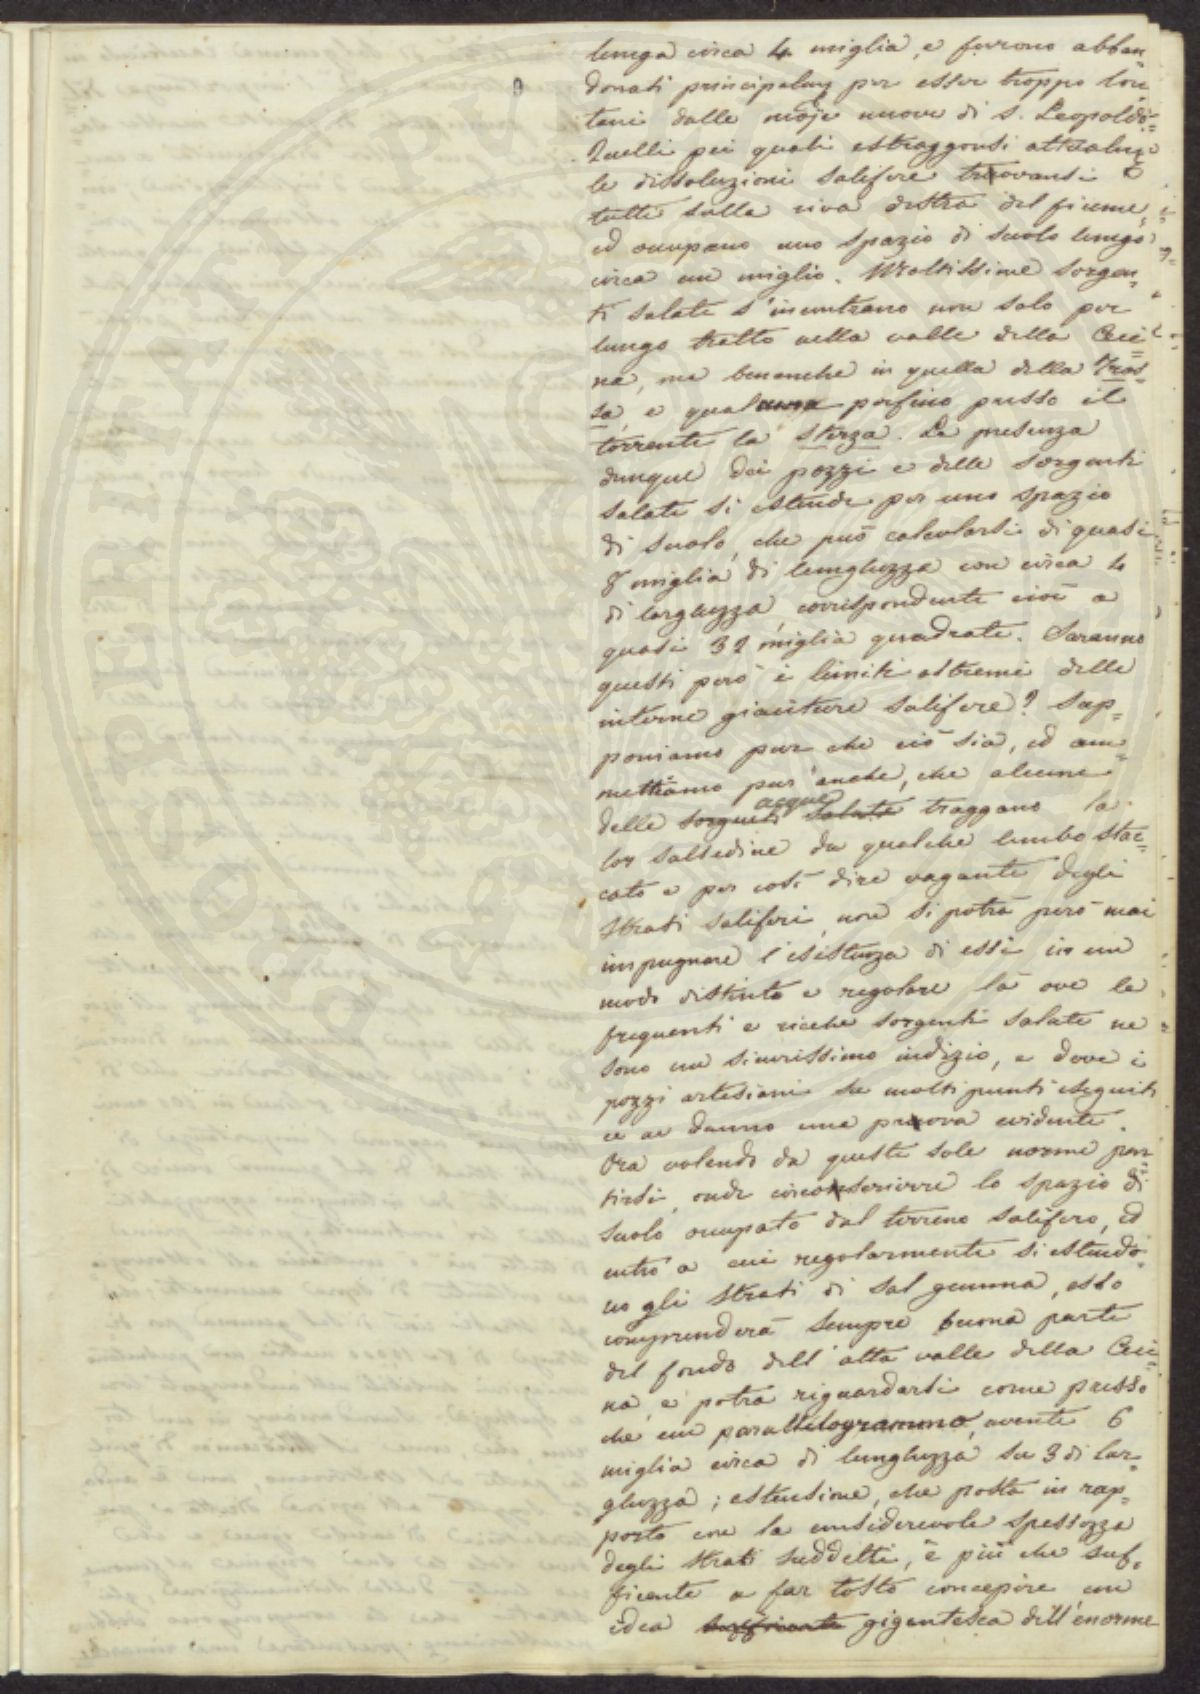 lunga circa 4 miglia, e furono abban=
donati principalmᵉ per esser troppo lon=
tani dalle moje nuove di S. Leopoldo=
Quelli pei quali estraggonsi attualmᵉ
le dissoluzioni salifere trovansi
tutti sulla riva destra del fiume,
ed occupano uno spazio di suolo lungo
circa un miglio. Moltissime sorgen=
ti salate s'incontrano non solo per
lungo tratto nella valle della Ceci=
na, ma benanche in quella della Tros=
sa, e qualcuna perfino presso il
torrente la Sterza. La presenza
dunque dei pozzi e delle sorgenti
salate si estende per uno spazio
di suolo, che può calcolarsi di quasi
8 miglia di lunghezza con circa 4
di larghezza, corrispondente cioè a
quasi 32 miglia quadrate. Saranno
questi però i limiti estremi delle
interne giaciture salifere? Sup=
poniamo pur che ciò sia, ed am=
mettiamo pur anche, che alcune
delle sorgenti acque salate traggano la
lor salsedine da qualche lembo stac=
cato e per così dire vagante degli
strati saliferi, non si potrà però mai
impugnare l'esistenza di essi in un
modo distinto e regolare là ove le
frequenti e ricche sorgenti salate ne
sono un sicurissimo indizio, e dove i
pozzi artesiani in molti punti eseguiti
ce ne danno una prova evidente.
Ora volendo da queste sole norme par=
tirsi, onde circoscrivere lo spazio di
suolo occupato dal terreno salifero, ed
entro a cui regolarmente si estendo=
no gli strati di sal gemma, esso
comprenderà sempre buona parte
del fondo dell'alta valle della Ceci=
na, e potrà riguardarsi come presso
che un parallelogrammo, avente 6
miglia circa di lunghezza su 3 di lar=
ghezza; estensione, che posta in rap=
porto con la considerevole spessezza
degli strati suddetti, è più che suf=
ficiente a far tosto concepire un
idea sufficiente gigantesca dell'enorme